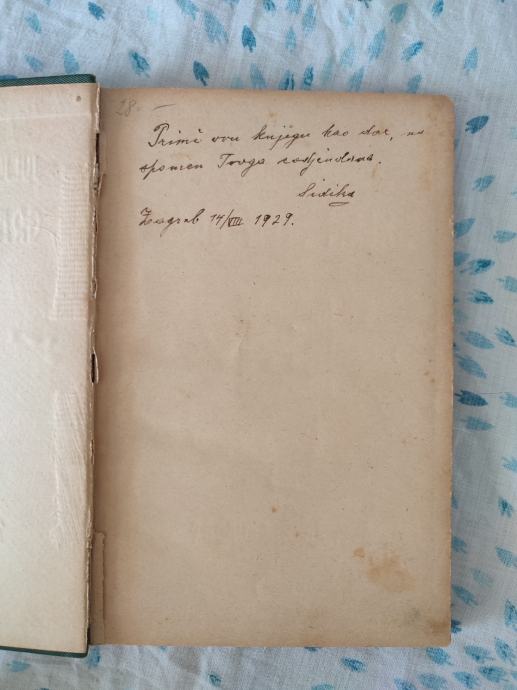 28.-
Primi ovu knjigu kao dar, na
spomen Tvoga rodjendana.
Sidika
Zagreb 14/VIII 1929.